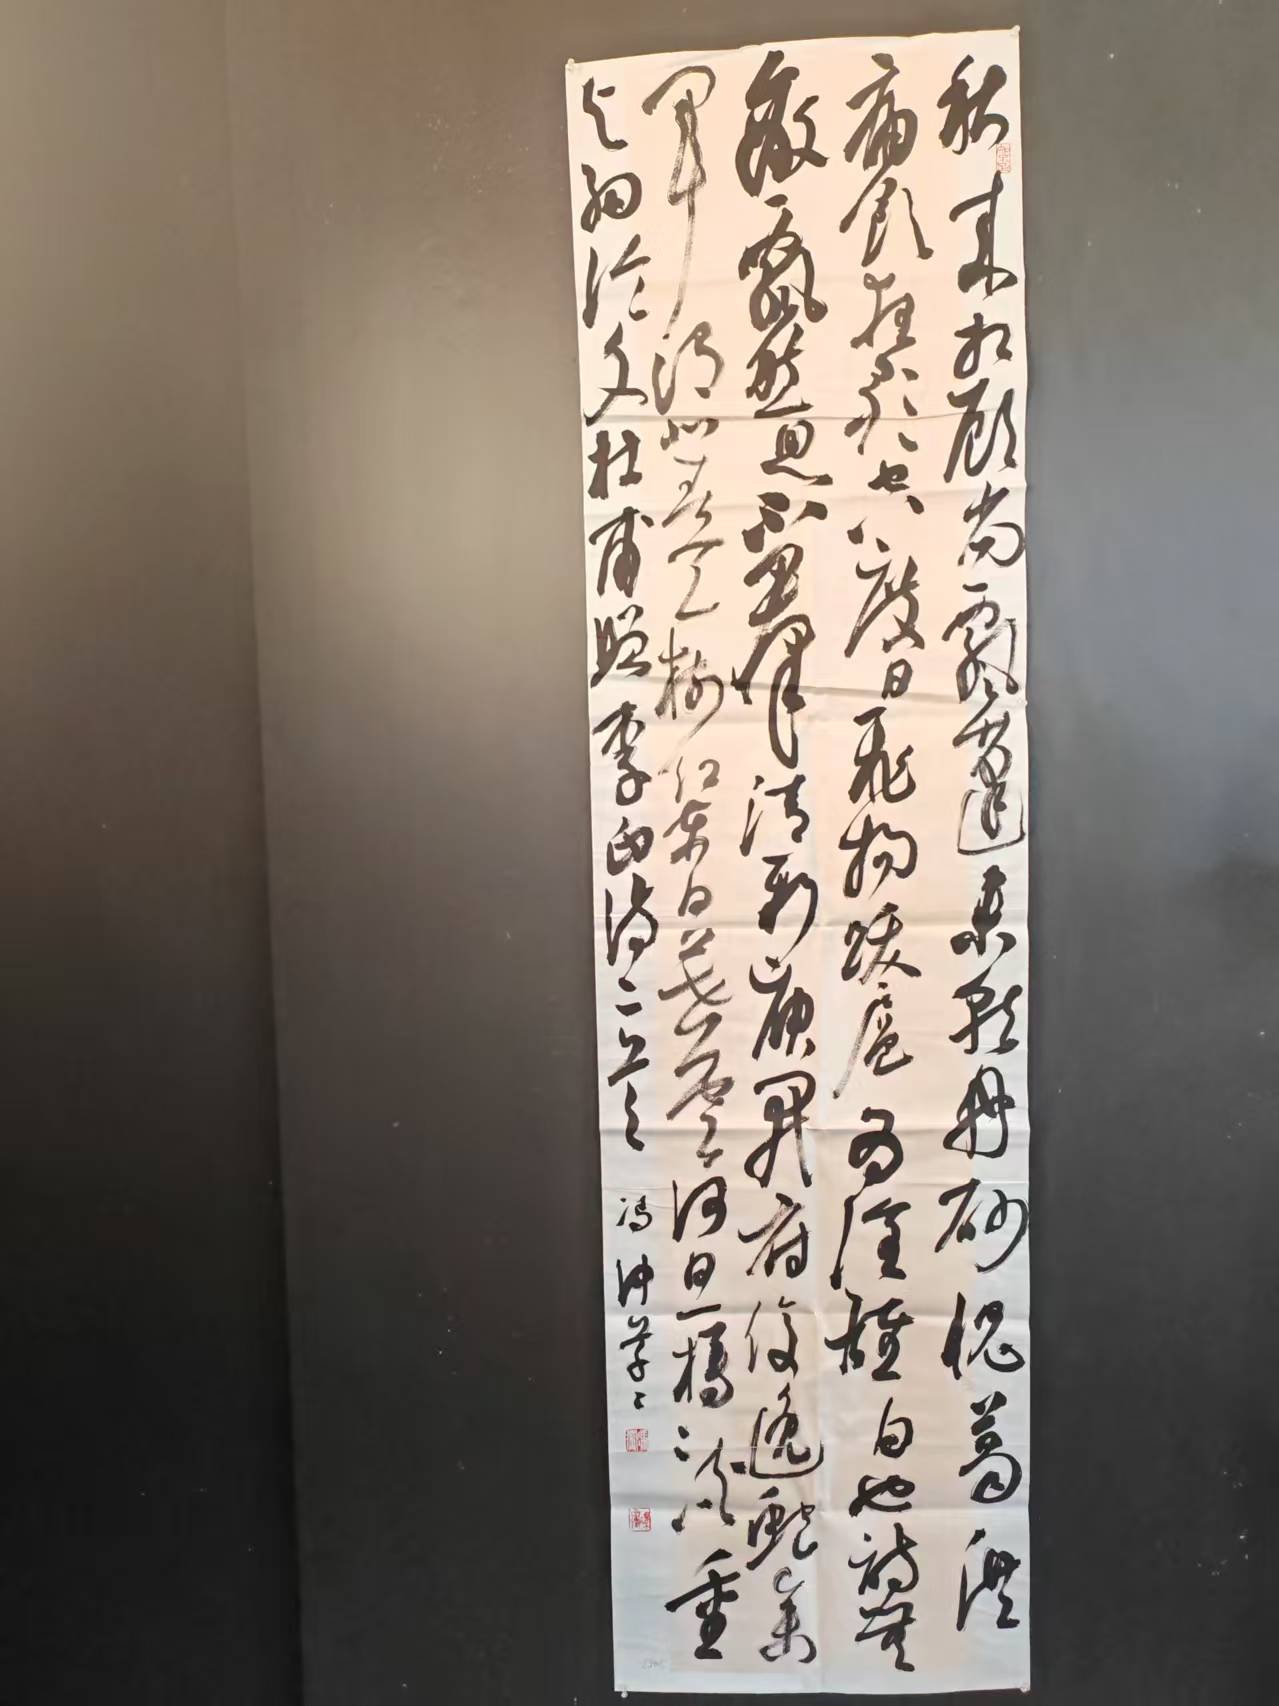 秋来相顧尚飄蓬未就丹砂愧葛洪
痛飲狂歌空度日飛揚跋扈為誰雄白也詩無
敵飄然思不群清新庾開府俊逸鮑參
軍渭北春天樹江東日暮雲何日一樽酒重
与細論文杜甫贈李白詩二首
冯冲草